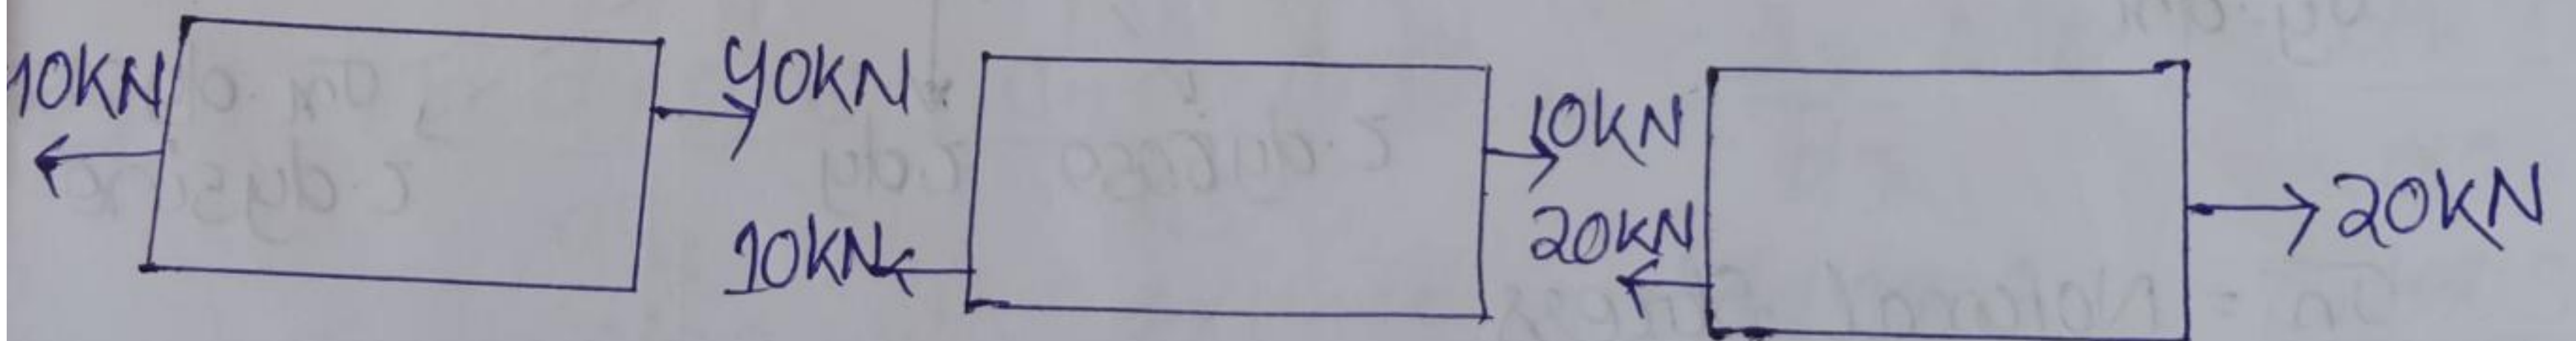 10KN
40KN
10KN
10KN
20KN
20KN